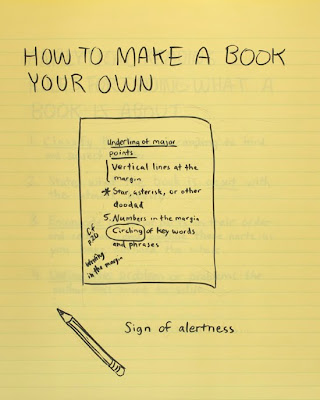 HOW TO MAKE A BOOK
YOUR OWN
Underling of major
points
Vertical lines at the
margin
* Star, asterisk, or other
doodad
5. Numbers in the margin
Circling of key words
and phrases
Cf
p.20
Writing
in the margin
Sign of alertness